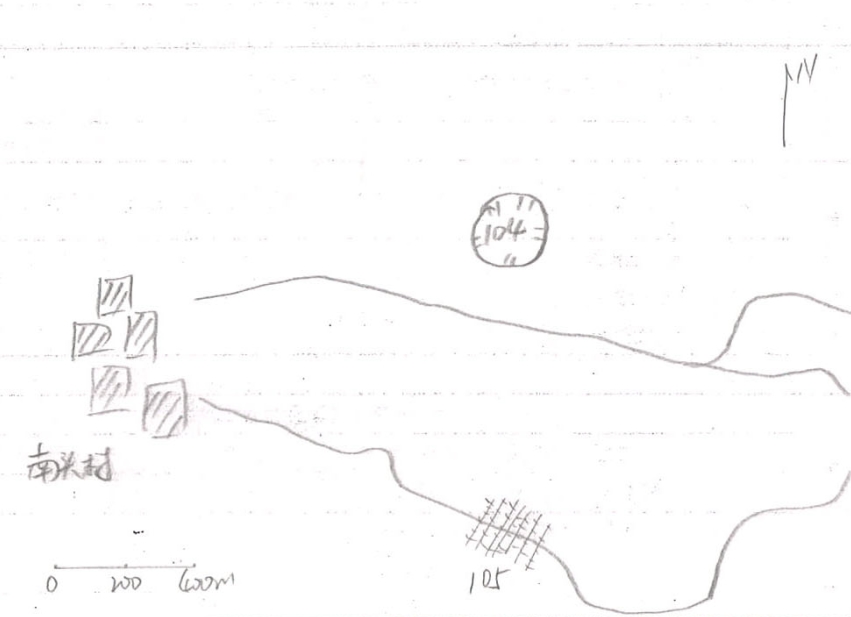 N
104
南头村
105
0 200 400m